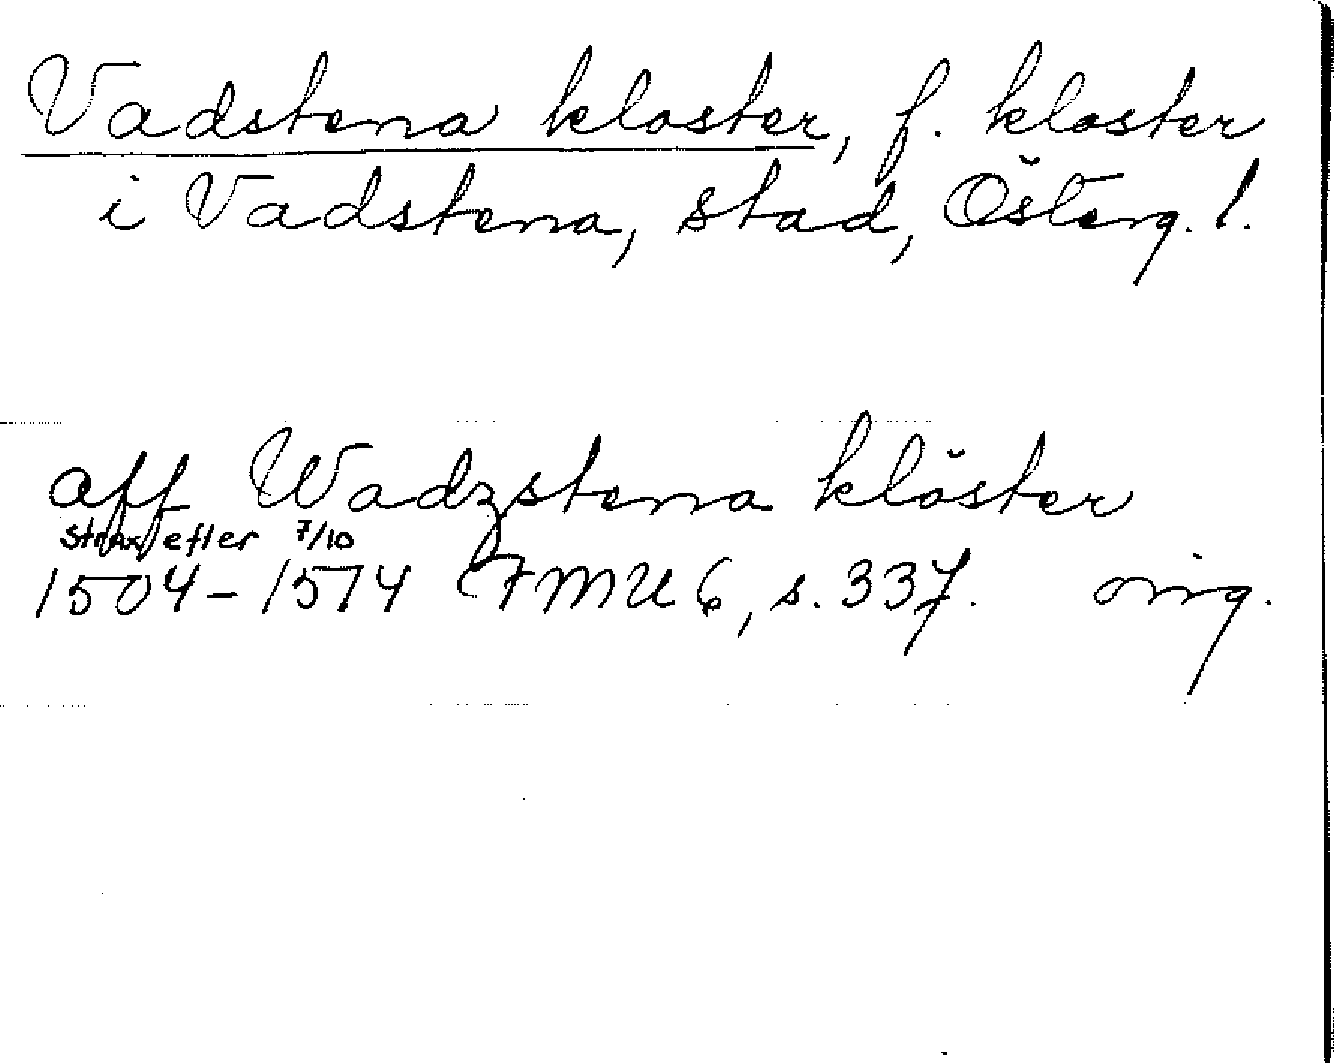 Vadstena kloster, f. kloster
i Vadstena, stad, Österg. l.
aff Wadzstena klöster
strax efter 7/10
1504-1514 FMU 6, s. 337. orig.